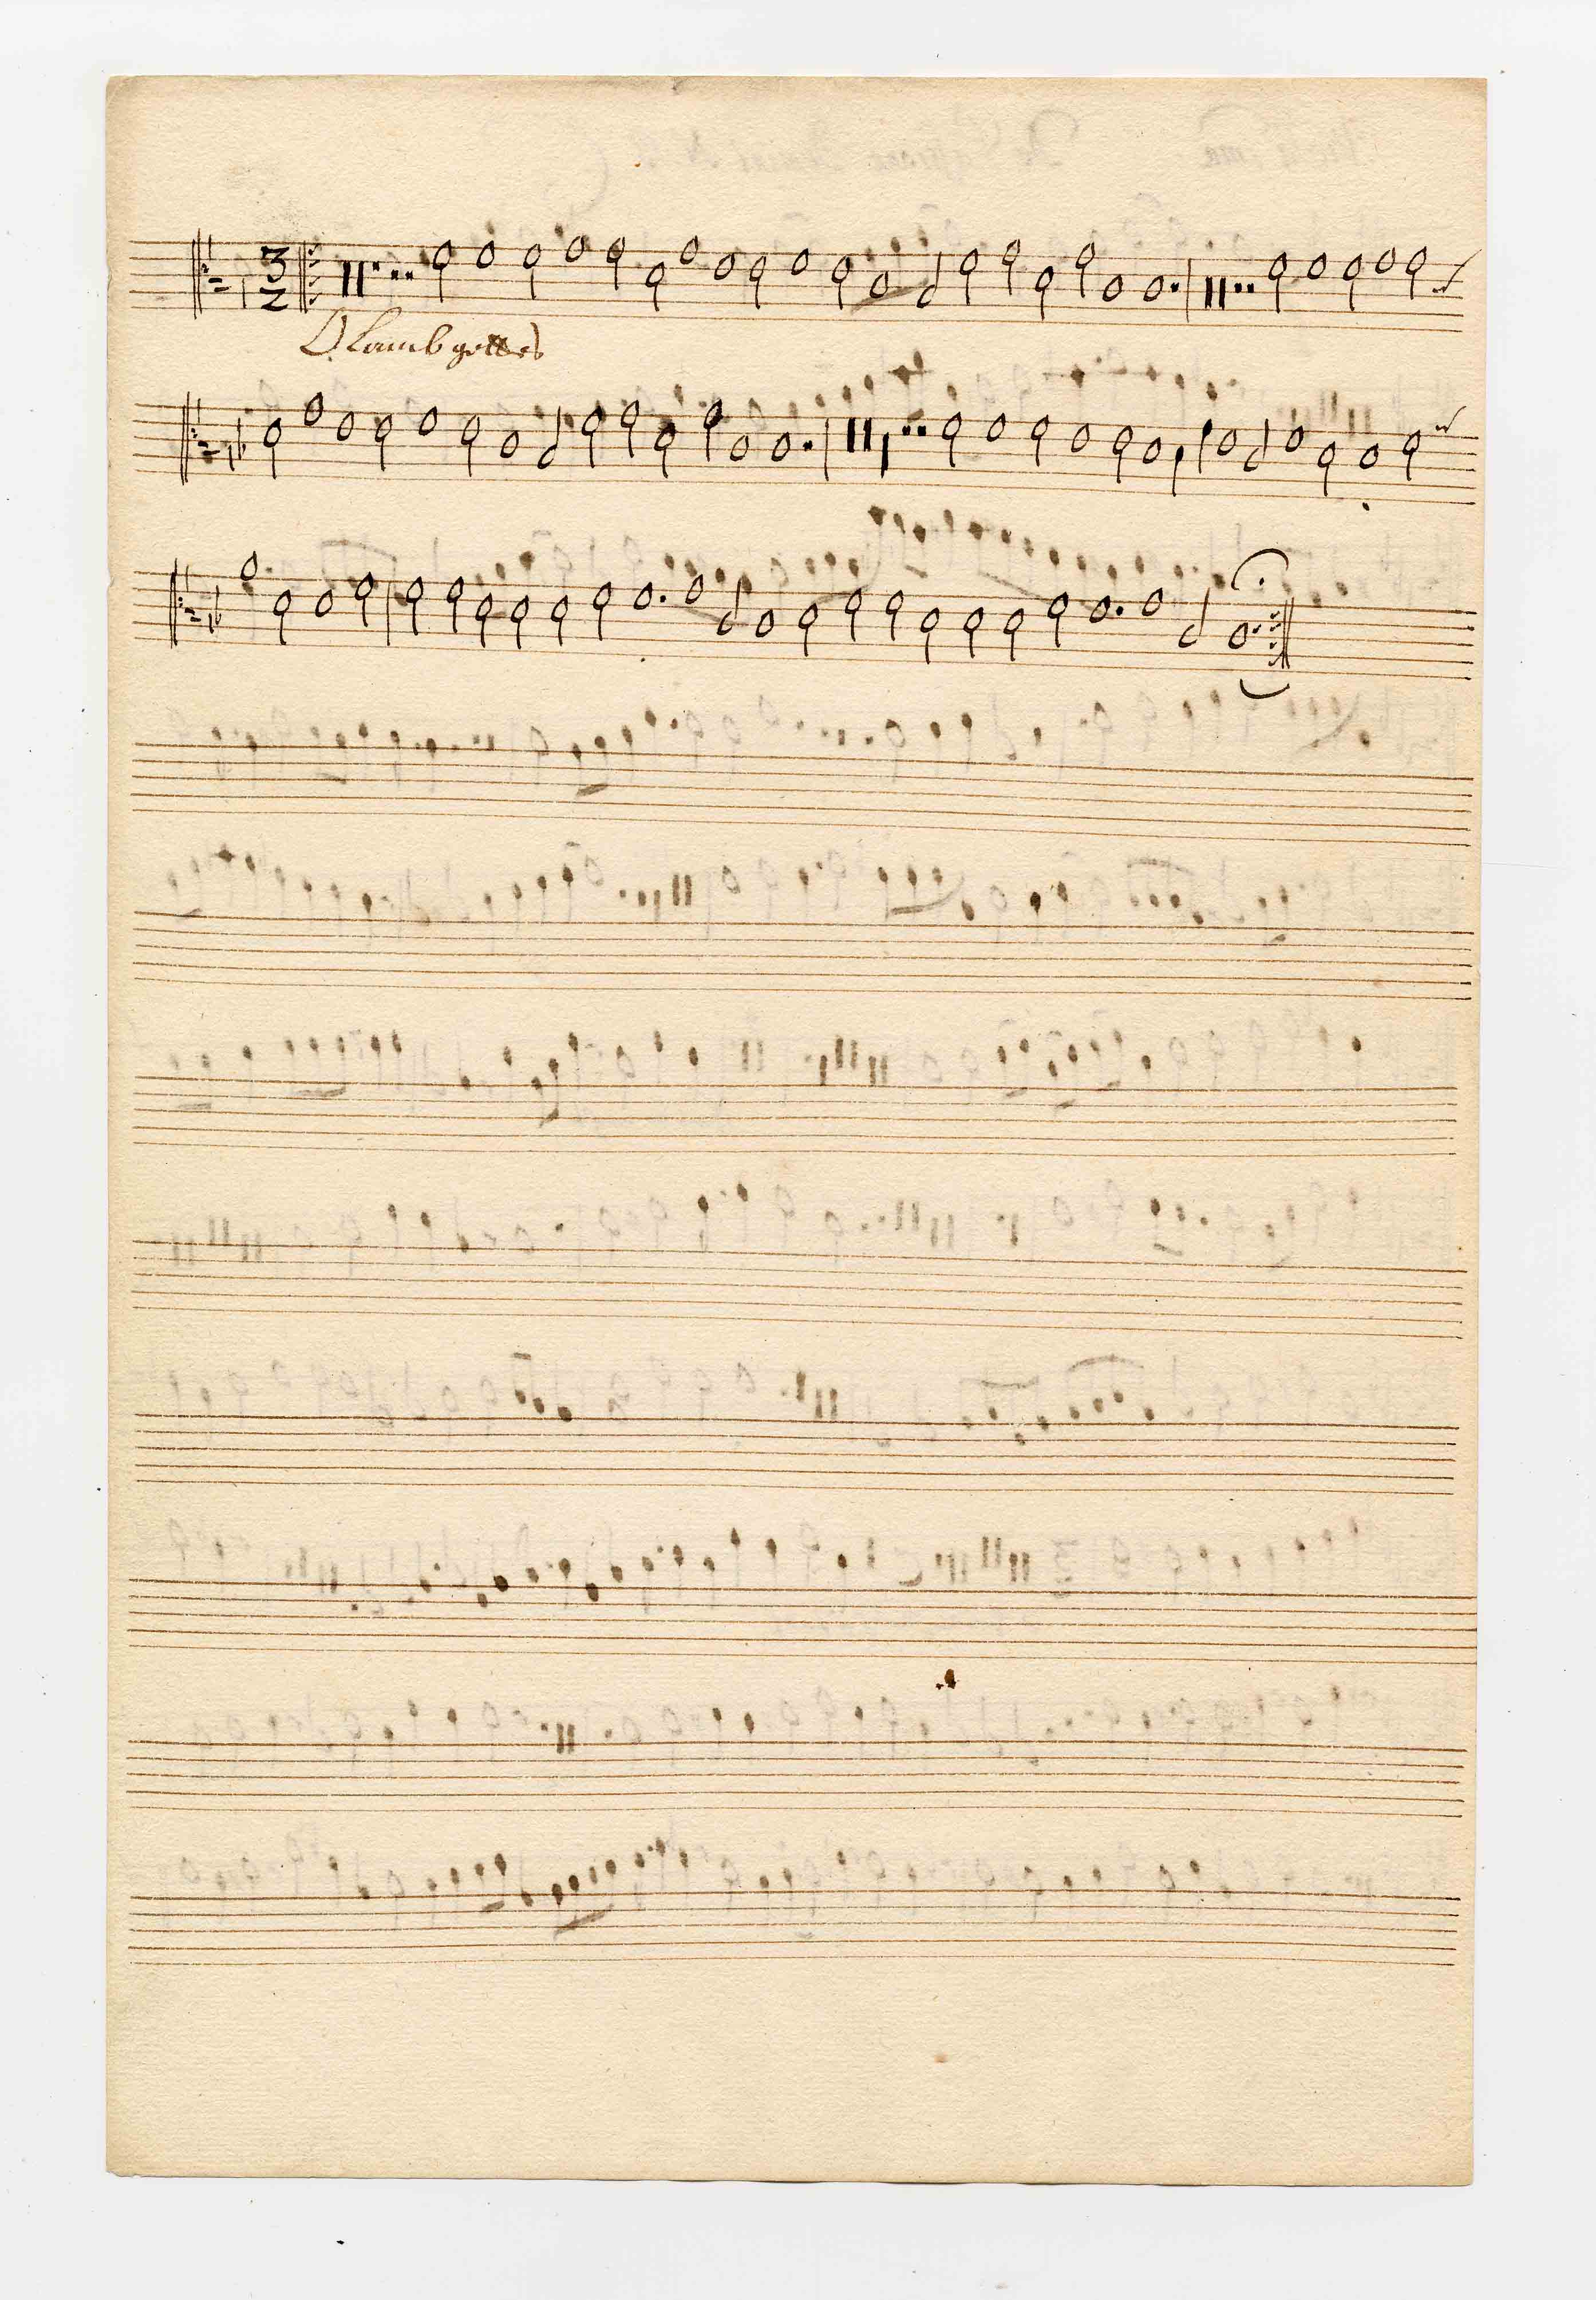 3
2
O Lamb gottes